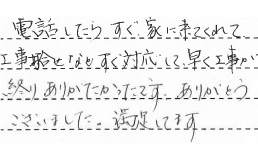 電話したら すぐ家に来てくれて
工事捨となど すぐ対応して、早く工事が
終り ありがたかったです。ありがとう
ございました。満足してます